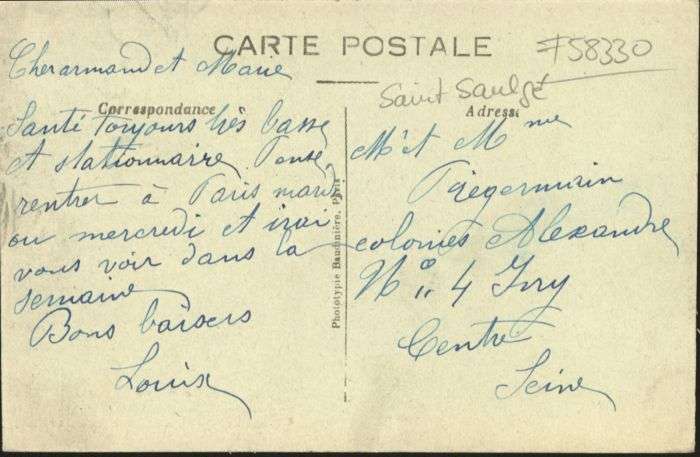 CARTE POSTALE
F58330
Saint Saulge
Correspondance
Adresse
Cher armand et Marie
Santé toujours très basse
et stationnaire Pense
rentrer à Paris mardi
ou mercredi et irai
vous voir dans la
semaine
Bons baisers
Louise
Phototypie Baudinière, Paris
Mr et Mme
colonies Alexandre
No 4 Ivry
Centre
Seine